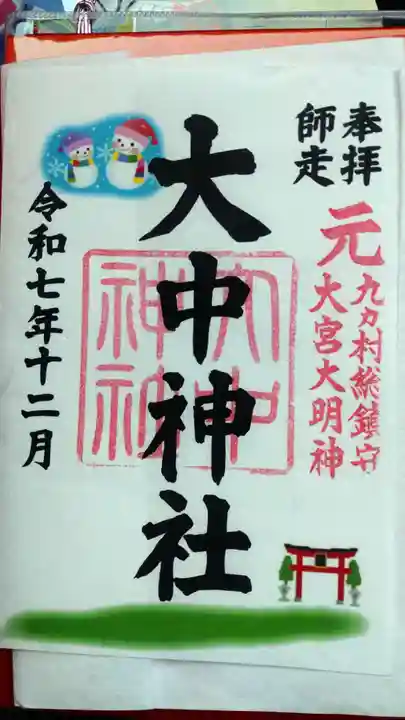 奉拝
師走
元
九カ村総鎮守
大宮大明神
大中神社
大中
神社
令和七年十二月